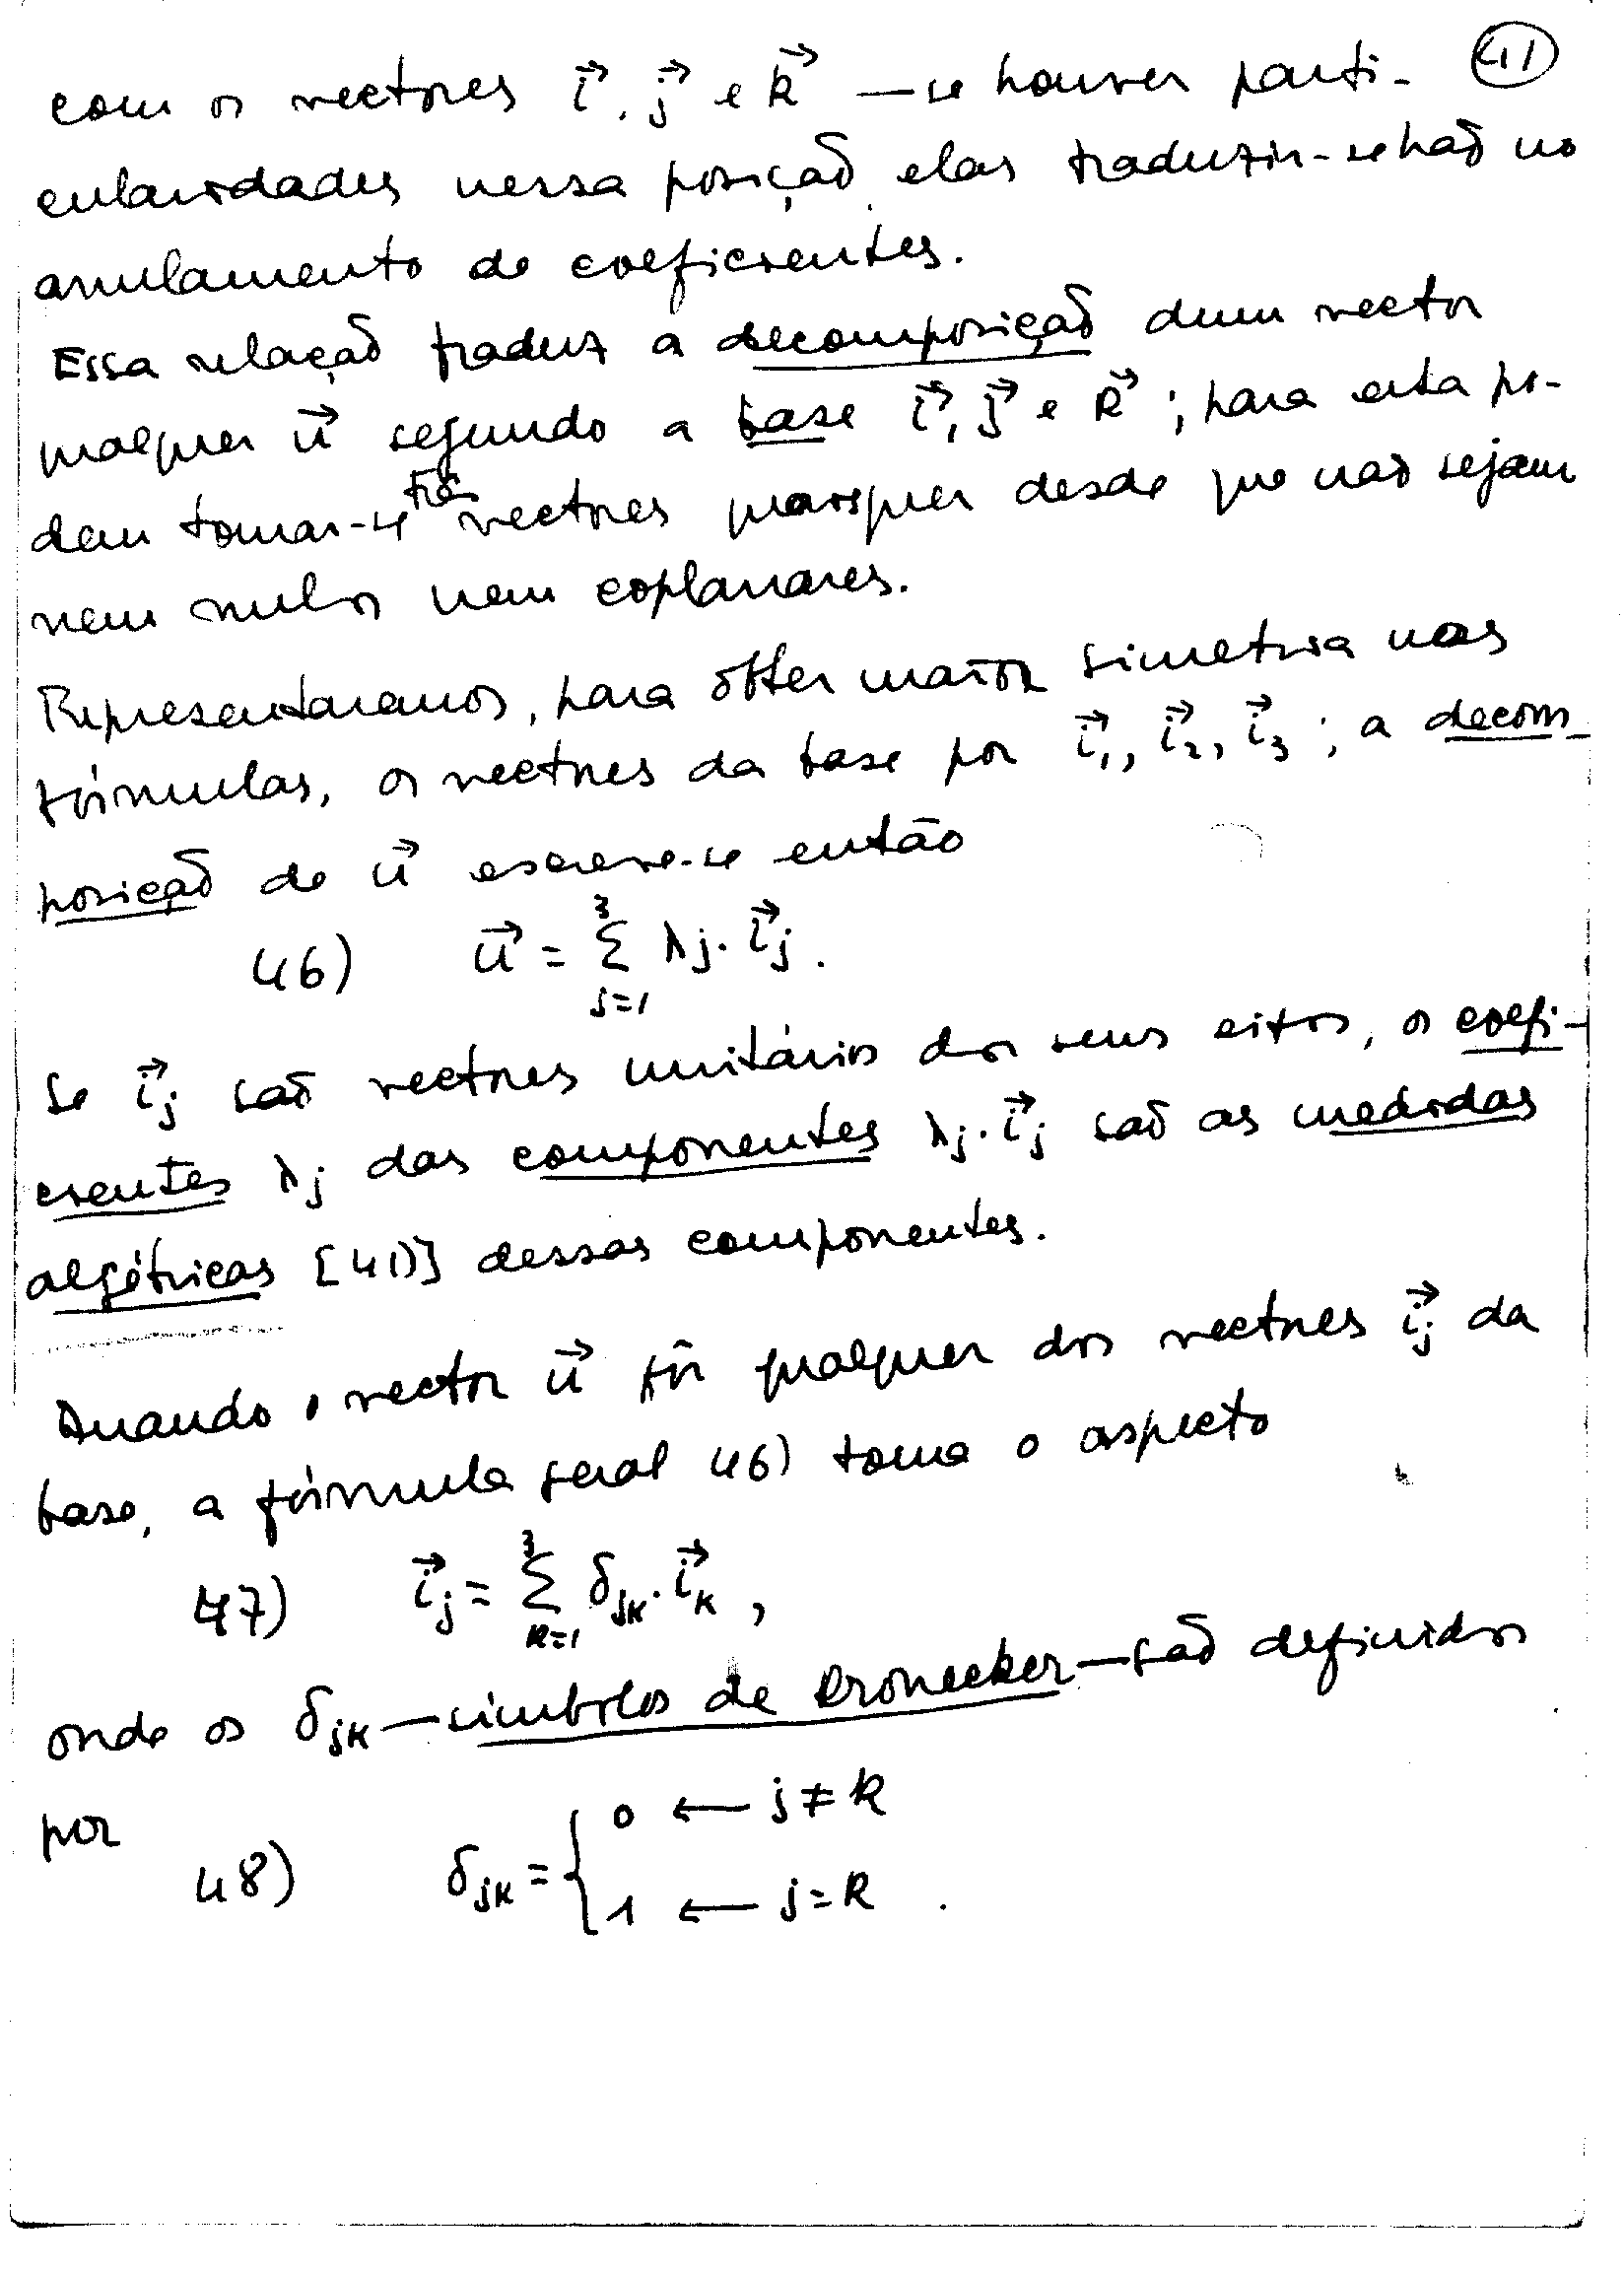 41
com os vectores i⃗, j⃗ e k⃗ — se houver parti-
cularidades nessa posição, elas traduzir-se hão no
anulamento de coeficientes.
Essa relação traduz a decomposição dum vector
qualquer u⃗ segundo a base i⃗, j⃗ e k⃗ ; para esta po-
dem tomar-se três vectores quaisquer desde que não sejam
nem nulos nem coplanares.
Representaremos, para obter maior simetria nas
fórmulas, os vectores da base por i⃗₁, i⃗₂, i⃗₃ ; a decom-
posição de u⃗ escreve-se então
46) u⃗ = Σ_{j=1}^{3} λj . i⃗j .
Se i⃗j são vectores unitários dos seus eixos, os coefi-
cientes λj das componentes λj . i⃗j são as medidas
algébricas [41)] dessas componentes.
Quando o vector u⃗ fôr qualquer dos vectores i⃗j da
base, a fórmula geral 46) toma o aspecto
47) i⃗j = Σ_{k=1}^{3} δjk . i⃗k ,
onde os δjk — símbolos de Kronecker — são definidos
por
48) δjk = { 0 ← j ≠ k
1 ← j = k .